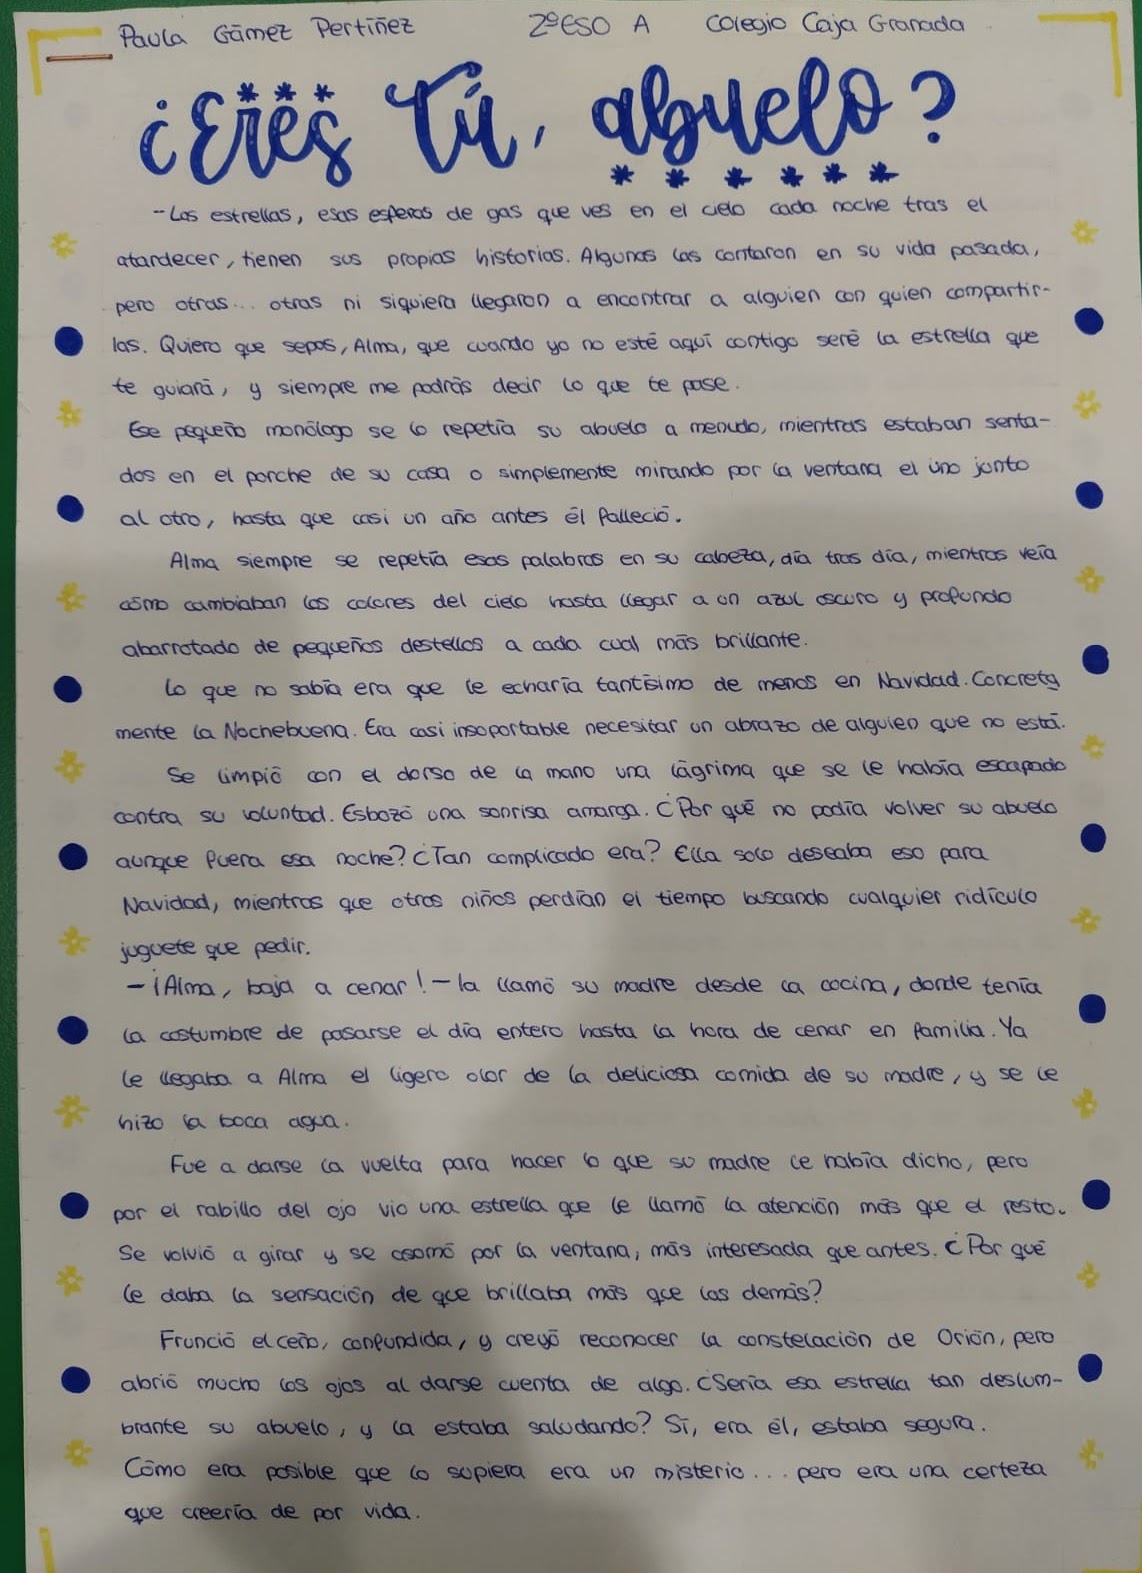 Paula Gámez Pertíñez 2º ESO A Colegio Caja Granada
¿Eres tú, abuelo?
-Las estrellas, esas esferas de gas que ves en el cielo cada noche tras el
atardecer, tienen sus propias historias. Algunas las contaron en su vida pasada,
pero otras... otras ni siquiera llegaron a encontrar a alguien con quien compartir-
las. Quiero que sepas, Alma, que cuando yo no esté aquí contigo seré la estrella que
te guiará, y siempre me podrás decir lo que te pase.
Ese pequeño monólogo se lo repetía su abuelo a menudo, mientras estaban senta-
dos en el porche de su casa o simplemente mirando por la ventana el uno junto
al otro, hasta que casi un año antes él falleció.
Alma siempre se repetía esas palabras en su cabeza, día tras día, mientras veía
cómo cambiaban los colores del cielo hasta llegar a un azul oscuro y profundo
abarrotado de pequeños destellos a cada cual más brillante.
Lo que no sabía era que le echaría tantísimo de menos en Navidad. Concreta
mente la Nochebuena. Era casi insoportable necesitar un abrazo de alguien que no está.
Se limpió con el dorso de la mano una lágrima que se le había escapado
contra su voluntad. Esbozó una sonrisa amarga. ¿Por qué no podía volver su abuelo
aunque fuera esa noche? ¿Tan complicado era? Ella solo deseaba eso para
Navidad, mientras que otros niños perdían el tiempo buscando cualquier ridículo
juguete que pedir.
-¡Alma, baja a cenar!- la llamó su madre desde la cocina, donde tenía
la costumbre de pasarse el día entero hasta la hora de cenar en familia. Ya
le llegaba a Alma el ligero olor de la deliciosa comida de su madre, y se le
hizo la boca agua.
Fue a darse la vuelta para hacer lo que su madre le había dicho, pero
por el rabillo del ojo vio una estrella que le llamó la atención más que el resto.
Se volvió a girar y se asomó por la ventana, más interesada que antes. ¿Por qué
le daba la sensación de que brillaba más que las demás?
Frunció el ceño, confundida, y creyó reconocer la constelación de Orión, pero
abrió mucho los ojos al darse cuenta de algo. ¿Sería esa estrella tan deslum-
brante su abuelo, y la estaba saludando? Sí, era él, estaba segura.
Cómo era posible que lo supiera era un misterio... pero era una certeza
que creería de por vida.